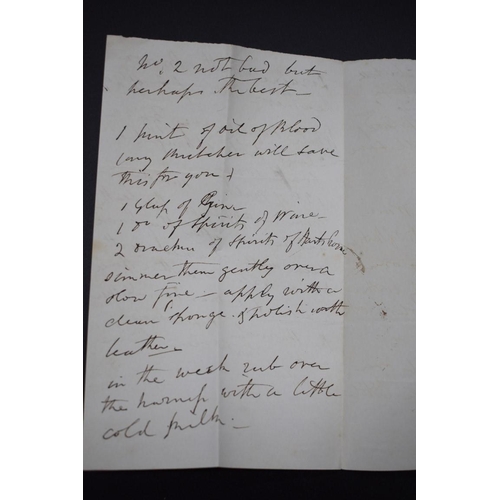 No. 2 not bad but
perhaps the best —
1 pint of oil of Blood
(any Butcher will save
this for you)
1 Glass of
1 oz of Spirits of Wine —
2 drachms of Spirits of Hartshorn
simmer them gently over a
slow fire — apply with a
clean sponge & polish with
leather —
in the week rub over
the harness with a little
cold milk. —